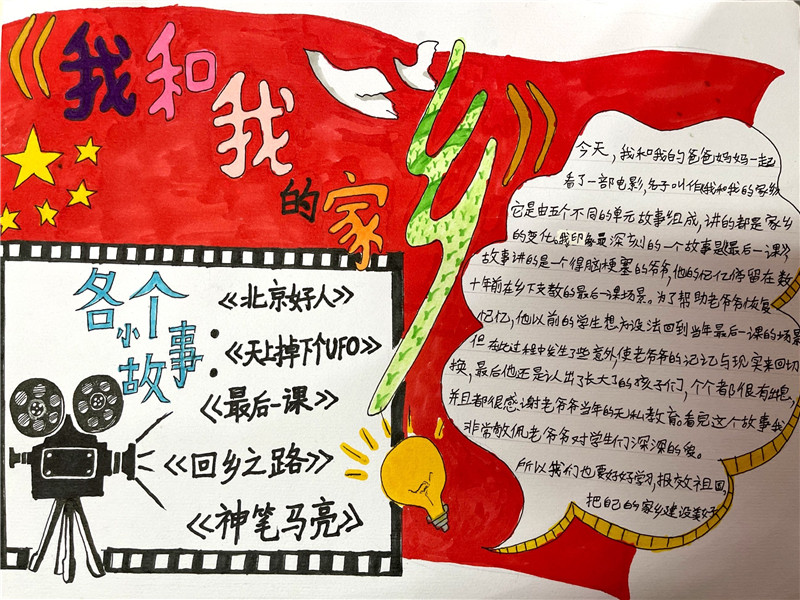 《我和我的家乡》
各个小故事：
《北京好人》
《天上掉下个UFO》
《最后一课》
《回乡之路》
《神笔马亮》
今天，我和我的爸爸妈妈一起
看了一部电影，名子叫作《我和我的家乡》
它是由五个不同的单元故事组成，讲的都是家乡
的变化。我印象最深刻的一个故事是《最后一课》
故事讲的是一个得脑梗塞的爷爷，他的记忆停留在数
十年前在乡下支教的最后一课场景。为了帮助老爷爷恢复
记忆，他以前的学生想方设法回到当年最后一课的场景
但在此过程中发生了些意外，使老爷爷的记忆与现实来回切
换，最后他还是认出了长大了的孩子们，个个都很有出息，
并且都很感谢老爷爷当年的无私教育。看完这个故事我
非常敬佩老爷爷对学生们深深的爱。
所以我们也要好好学习，报效祖国，
把自己的家乡建设美好